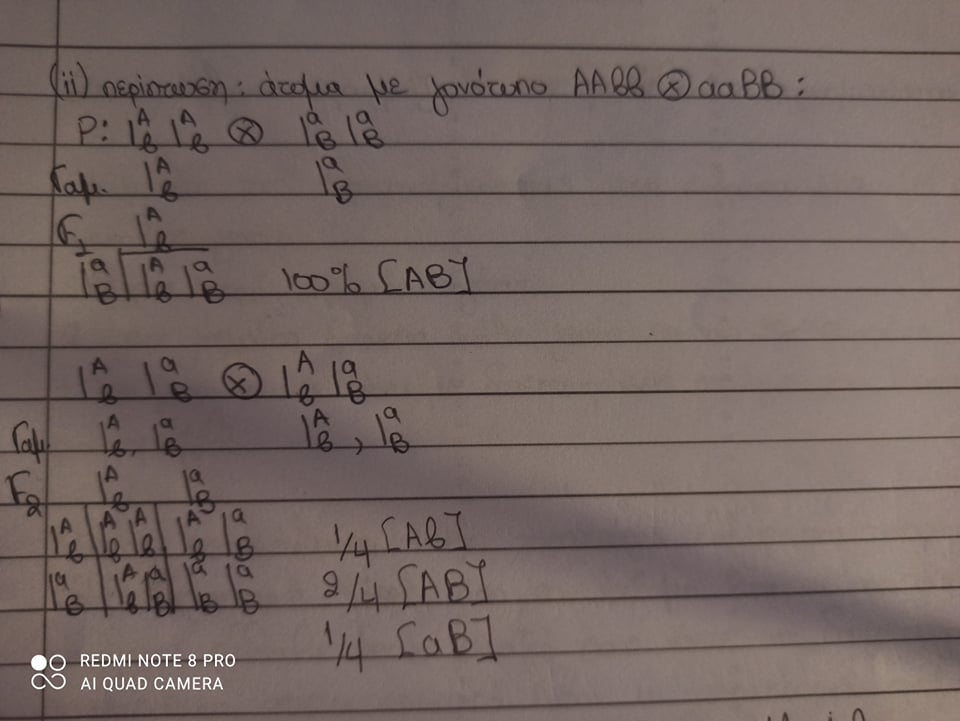 (ii) περίπτωση: άτομα με γονότυπο AAββ ⊗ aaBB:
P: |A β |A β ⊗ |a B |a B
Γαμ. |A β |a B
F1 |A β
|a B |A β |a B 100% [AB]
|A β |a B ⊗ |A β |a B
Γαμ |A β, |a B |A β, |a B
F2 |A β |a B
|A β |A β |A β |A β |a B 1/4 [Aβ]
|a B |A β |a B |a B |a B 2/4 [AB]
1/4 [aB]
REDMI NOTE 8 PRO
AI QUAD CAMERA